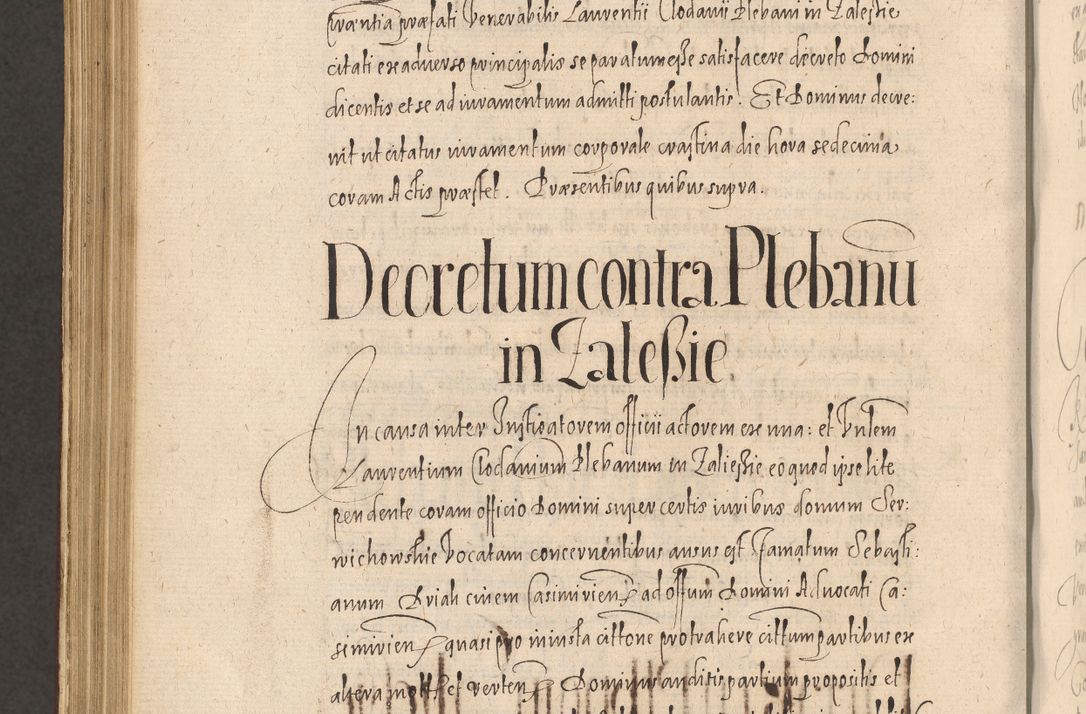 præfati Venerabilis Laurentii Clodavii Plebani in Zaleskie
citati ex adverso principalis se paratum esse satisfacere decreto Domini
dicentis et se ad iuramentum admitti postulantis. Et Dominus decre:
vit ut citatus iuramentum corporale crastina die hora sedecima
coram Actis præstet. Præsentibus quibus supra.
Decretum contra Plebanu
in Zaleßie
In causa inter Instigatorem officii actorem ex una: et Vnlem
Laurentium Clodavium Plebanum in Zaließie eo quod ipse lite
pendente coram officio Domini super certis iuribus domum Ser:
wichowskie vocatam concernentibus ausus est Famatum Sebasti:
anum civem Casimirien ad offium Domini Advocati Ca:
simirien quasi pro iniusta cittone protrahere cittum partibus ex
altera et verten Dominus auditis partium propositis et